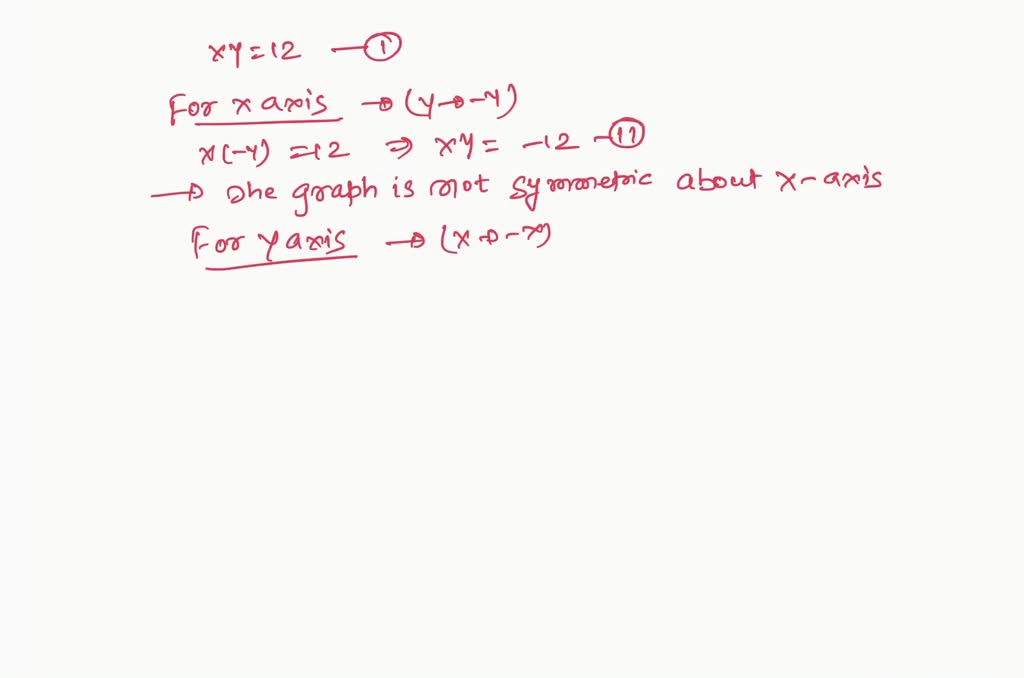 xy = 12 — ①
For x axis → (y → -y)
x(-y) = 12 ⇒ xy = -12 — ⑪
→ The graph is not symmetric about x-axis
For y axis → (x → -x)